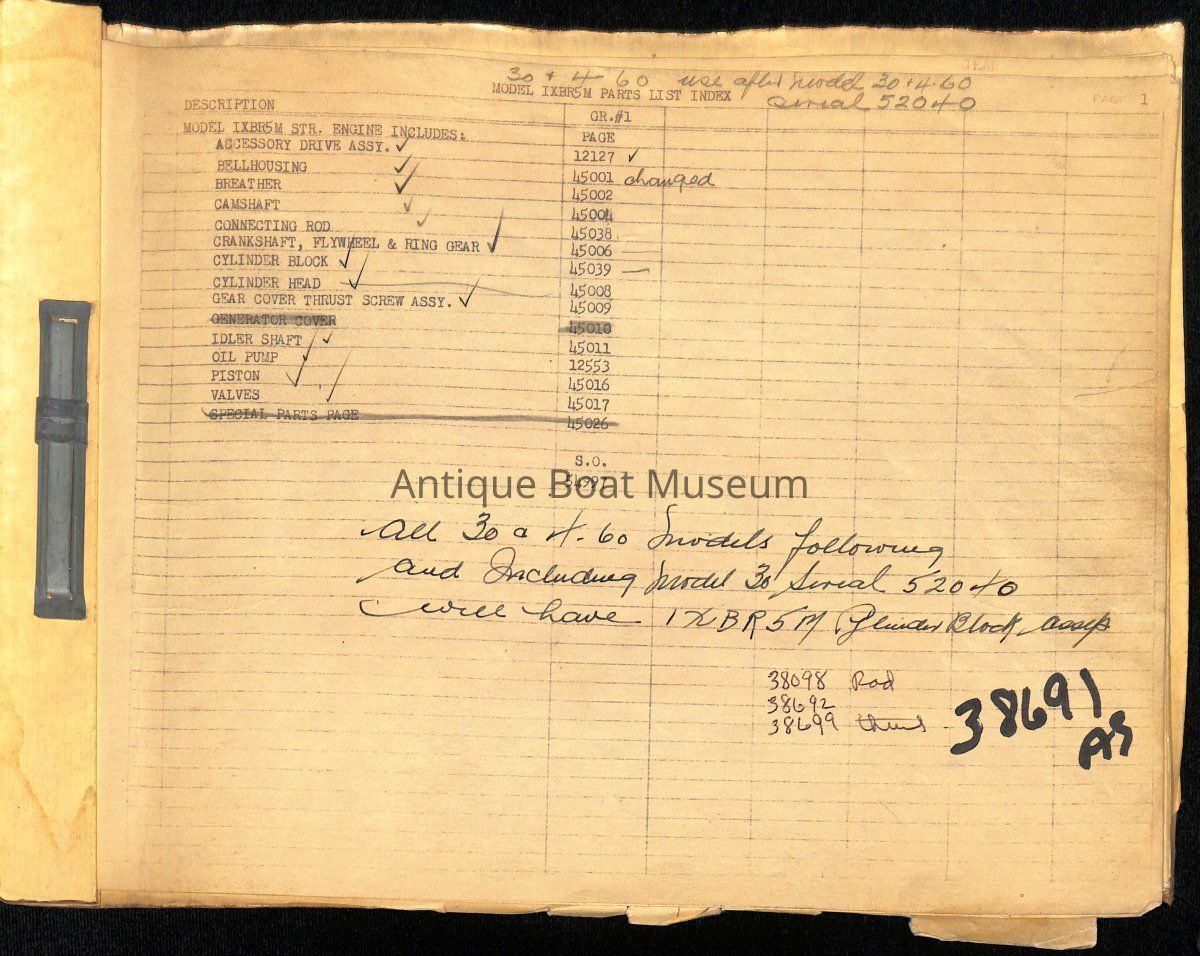 30 + 4-60 use after model 30+4-60
serial 52040
MODEL IXBR5M PARTS LIST INDEX
PAGE 1
DESCRIPTION
GR.#1
MODEL IXBR5M STR. ENGINE INCLUDES:
PAGE
ACCESSORY DRIVE ASSY. ✓ 12127 ✓
BELLHOUSING ✓ 45001 changed
BREATHER ✓ 45002
CAMSHAFT ✓ 45004
CONNECTING ROD ✓ 45038
CRANKSHAFT, FLYWHEEL & RING GEAR ✓ 45006
CYLINDER BLOCK ✓ 45039 —
CYLINDER HEAD ✓ 45008
GEAR COVER THRUST SCREW ASSY. ✓ 45009
GENERATOR COVER 45010
IDLER SHAFT ✓ 45011
OIL PUMP ✓ 12553
PISTON ✓ 45016
VALVES ✓ 45017
SPECIAL PARTS PAGE 45026
S.O.
Antique Boat Museum
All 30 & 4-60 models following
and Including model 30 Serial 52040
will have 1XBR5M Cylinder Block assys
38098 Rod
38692
38699
38691
AS